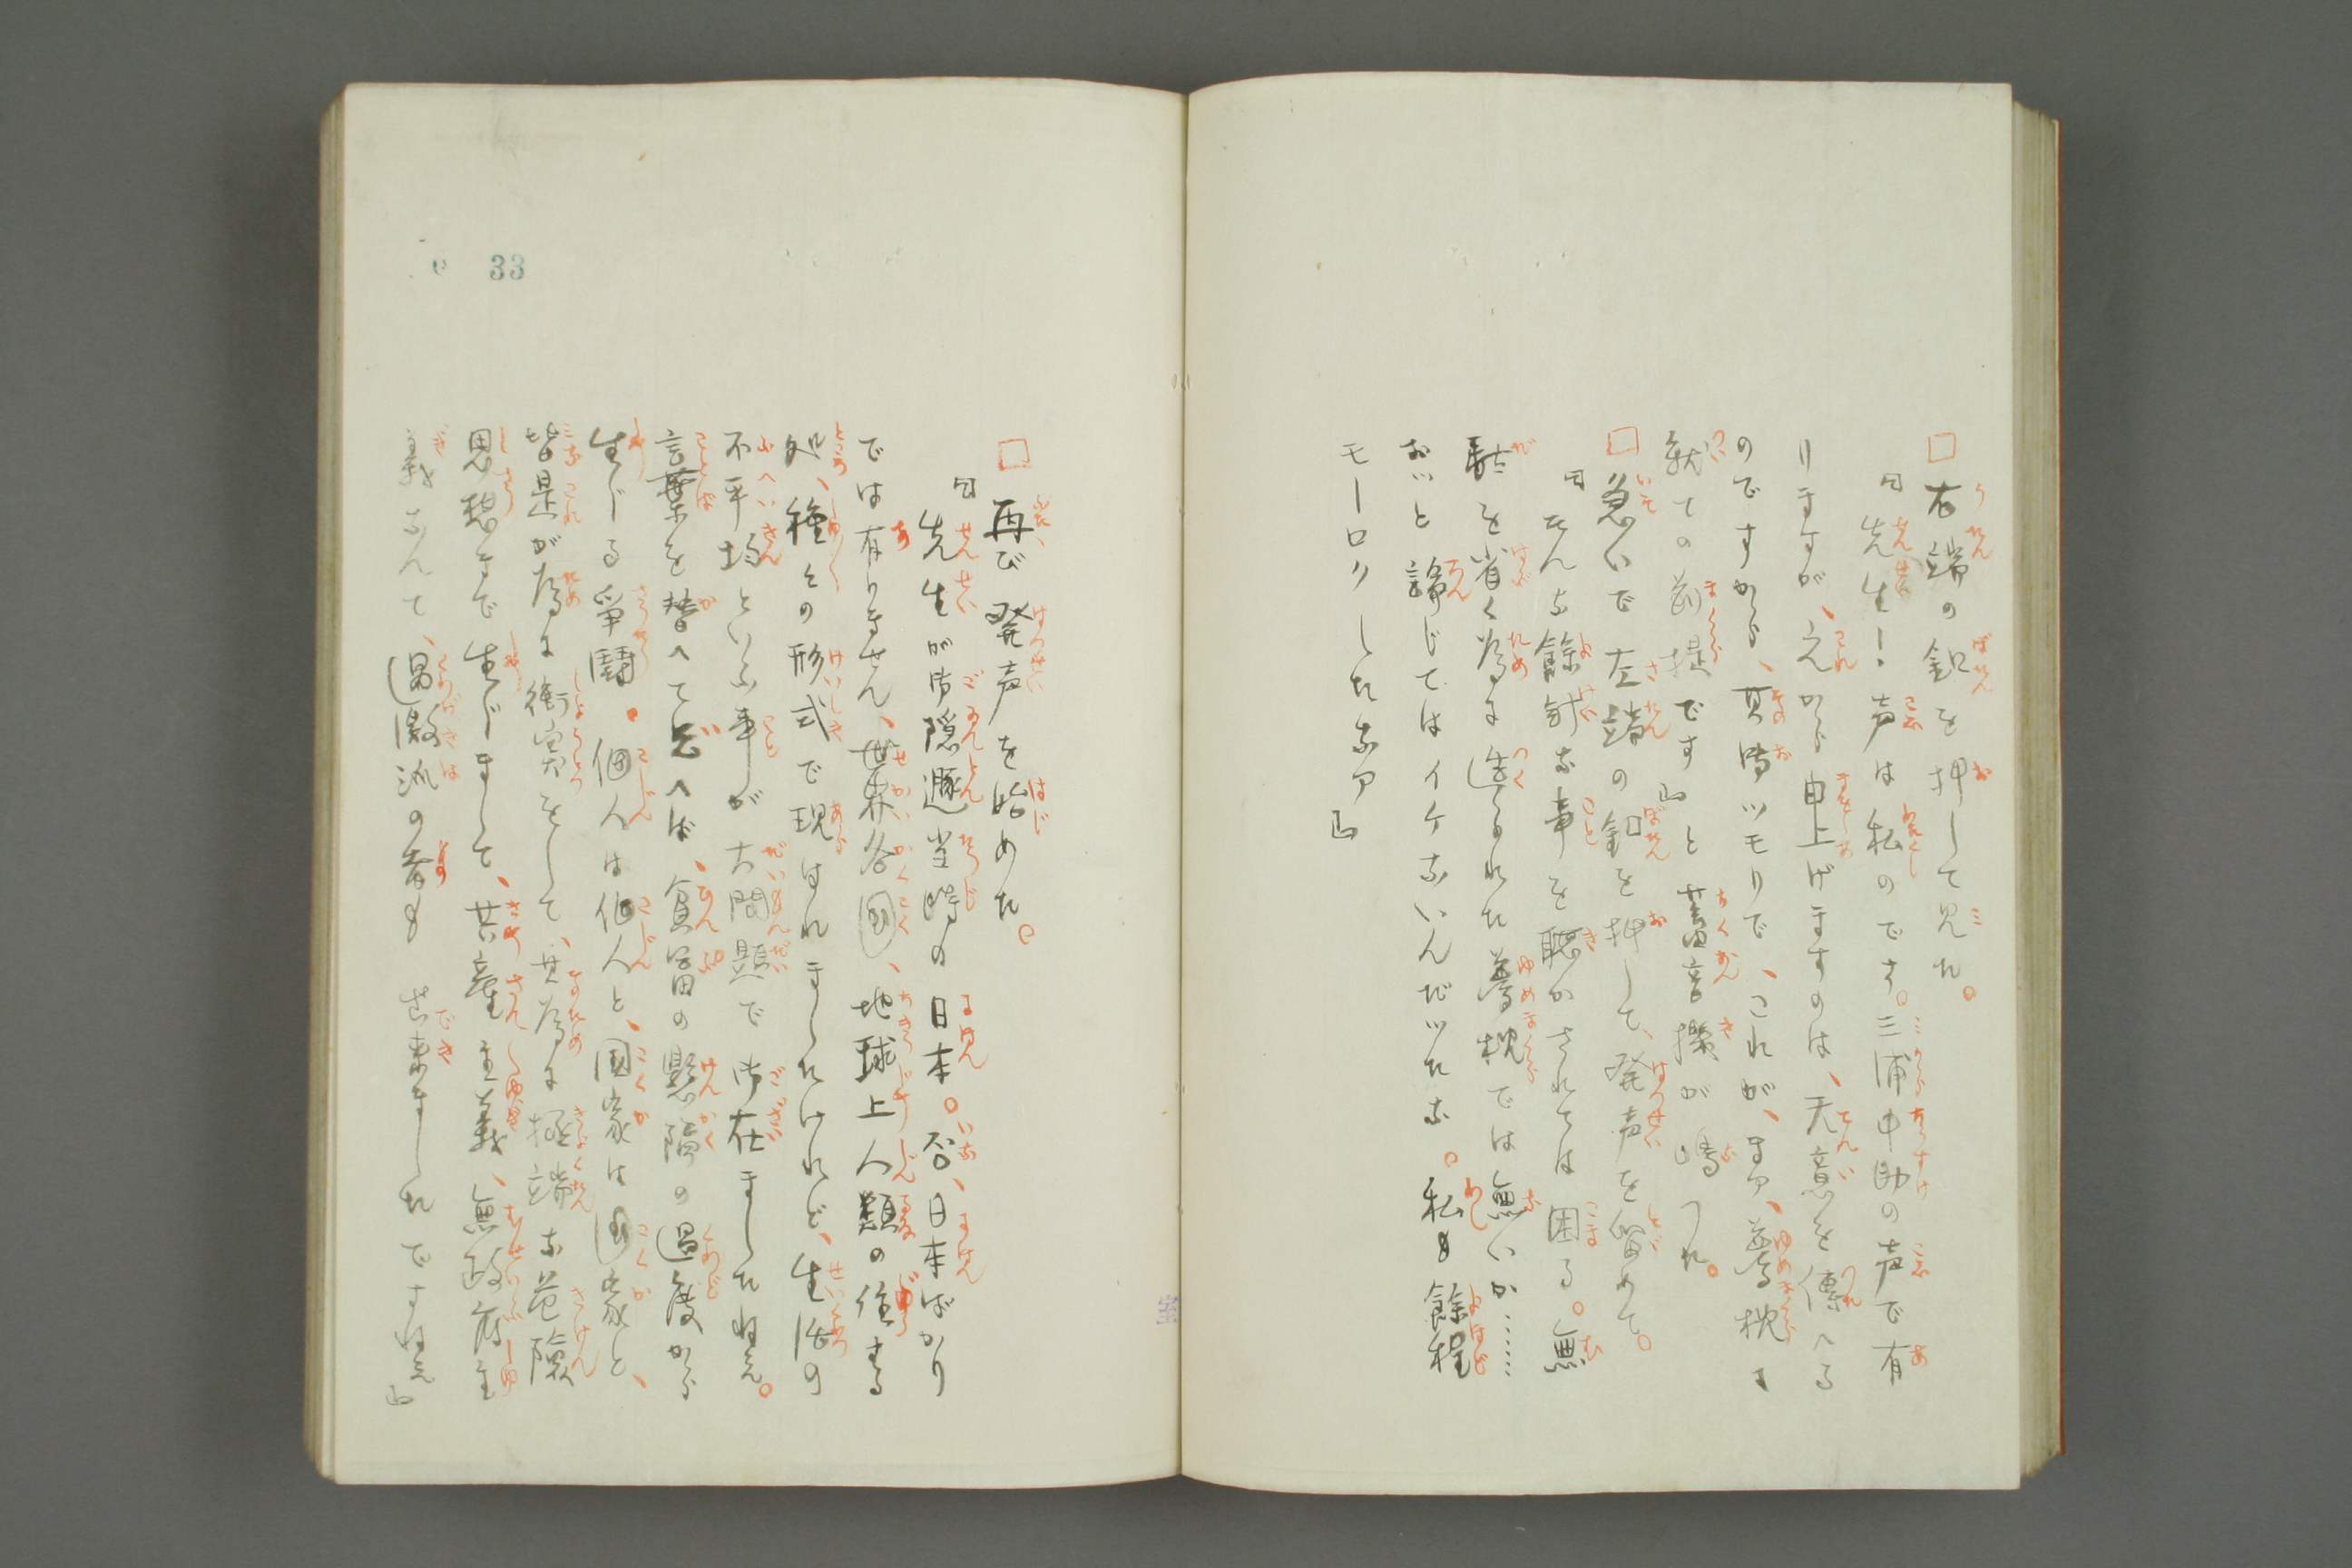 □右端の釦を押して見た。
「先生！声は私のです。三浦中助の声で有
りますが、之から申上げますのは、天意を傳へる
のですから、其時ツモリで、これが、まア、夢枕に
就ての前提です」と蓄音機が鳴つた。
□急いで左端の釦を押して、発声を留めて。
「そんな餘計な事を聴かされては困る。無
駄を省く為に造られた夢枕では無いか……
おいと諦じてはイケないんだツたな。私も餘程
モーロクしたなア」
□再び発声を始めた。
「先生が御隠遯当時の日本。否、日本ばかり
では有りません、世界各国、地球上人類の住する
処、種々の形式で現はれましたけれど、生活の
不平均といふ事が大問題で御在ましたねえ。
言葉を替へて云へば、貧富の懸隔の過度から
生じる爭鬪。個人は個人と、国家は国家と、
皆是が為に衝突をして、其為に極端な危険
思想まで生じまして、共産主義、無政府主
義なんて、過激派の者も出来ましたですねえ」
33